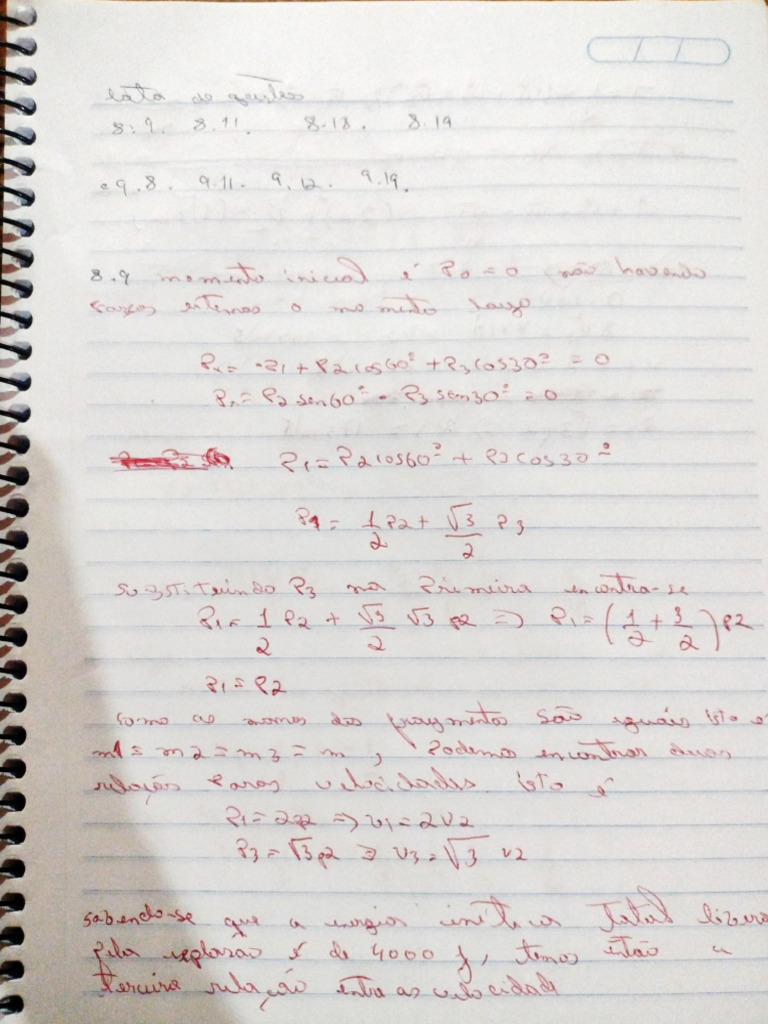 lista de questões
8.9. 8.11. 8.18. 8.19
9.8. 9.11. 9.12. 9.19.
8.9 momento inicial é P0 = 0, não havendo
externas o momento
Px = -P1 + P2 cos60º + P3 cos30º = 0
P2 sen60º - P3 sen30º = 0
P1 = P2 cos60º + P3 cos30º
P1 = 1/2 P2 + √3/2 P3
P3 na Primeira encontra-se
P1 = 1/2 P2 + √3/2 √3 P2 => P1 = (1/2 + 3/2) P2
P1 = P2
como as dos fragmentos são iguais isto é
m1 = m2 = m3 = m, Podemos encontrar duas
relações velocidades. isto é
P1 = 2P2 => v1 = 2v2
P3 = √3 P2 => v3 = √3 v2
sabendo-se que a energia total
pela explosão é de 4000 J, temos então a
terceira relação entre as velocidade